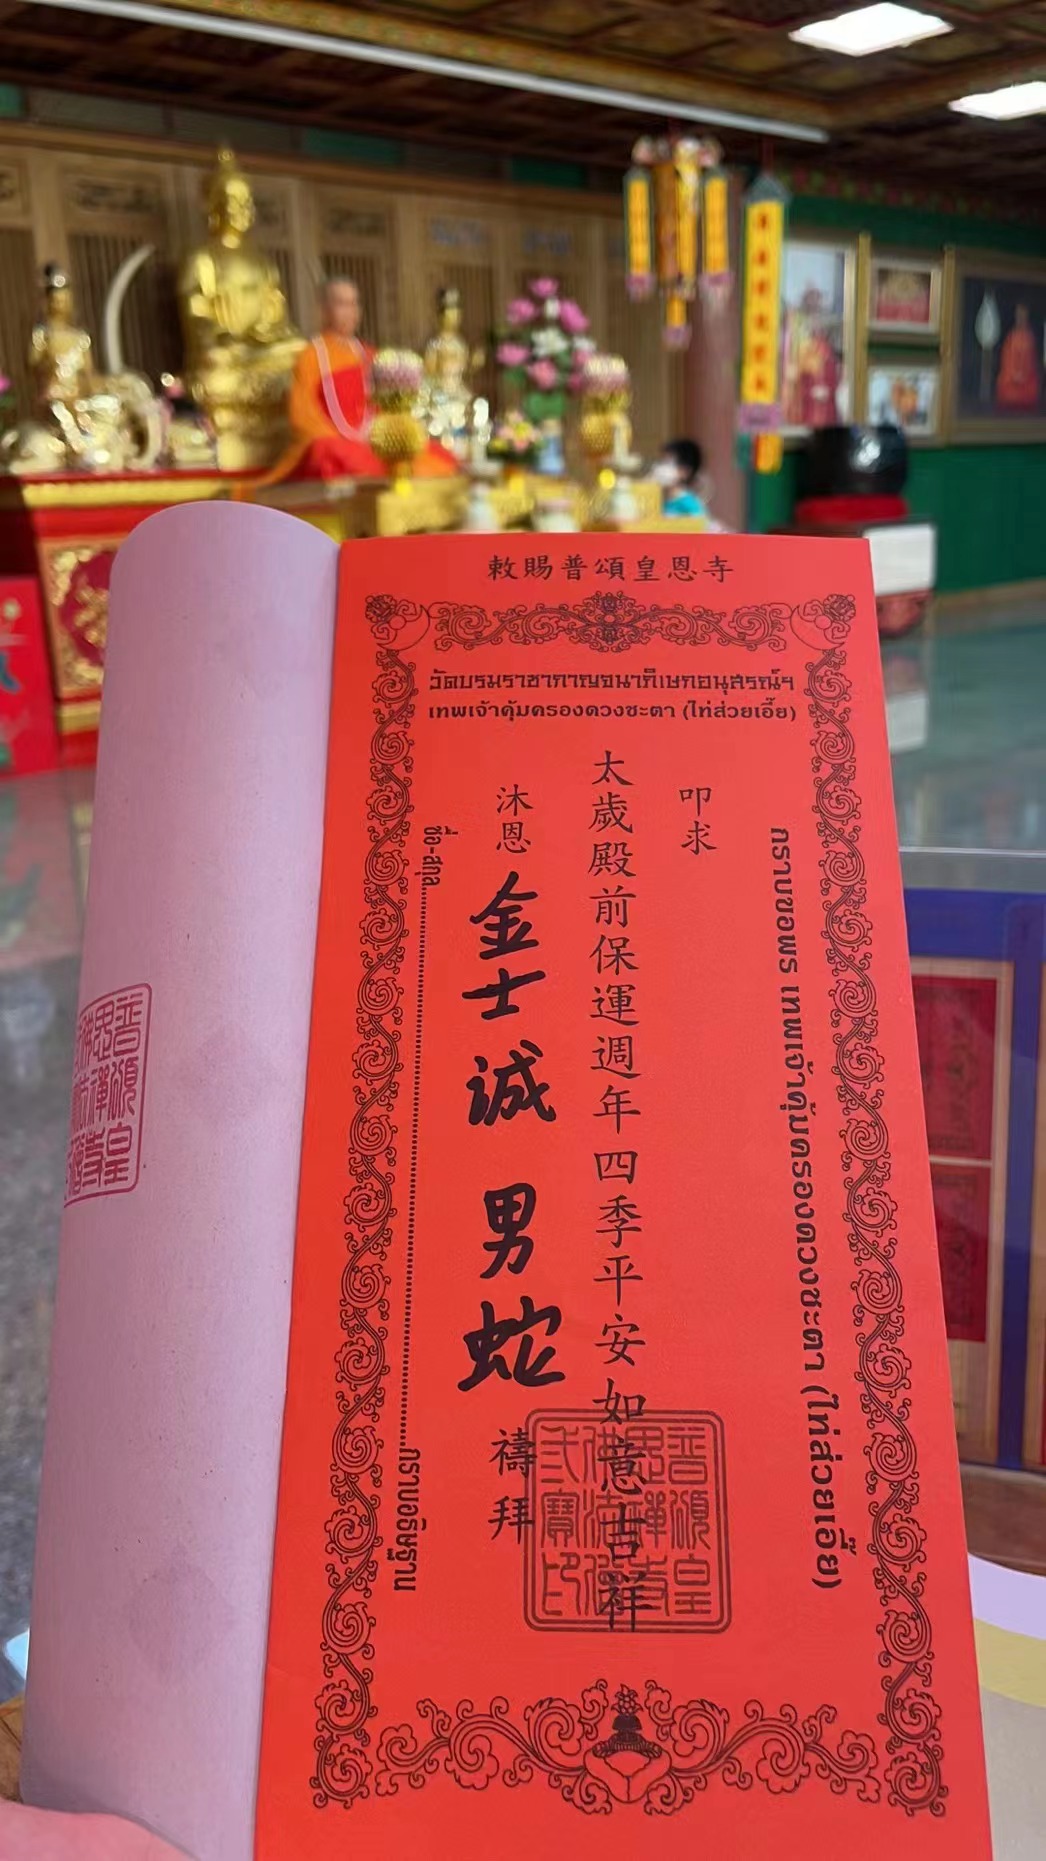 敕賜普頌皇恩寺
วัดบรมราชากาญจนาภิเษกอนุสรณ์ฯ
เทพเจ้าคุ้มครองดวงชะตา (ไท่ส่วยเอี๊ย)
กราบขอพร เทพเจ้าคุ้มครองดวงชะตา (ไท่ส่วยเอี๊ย)
叩求
太歲殿前保運週年四季平安如意吉祥
沐恩 金士誠 男 蛇 禱拜
ชื่อ-สกุล กราบอธิษฐาน